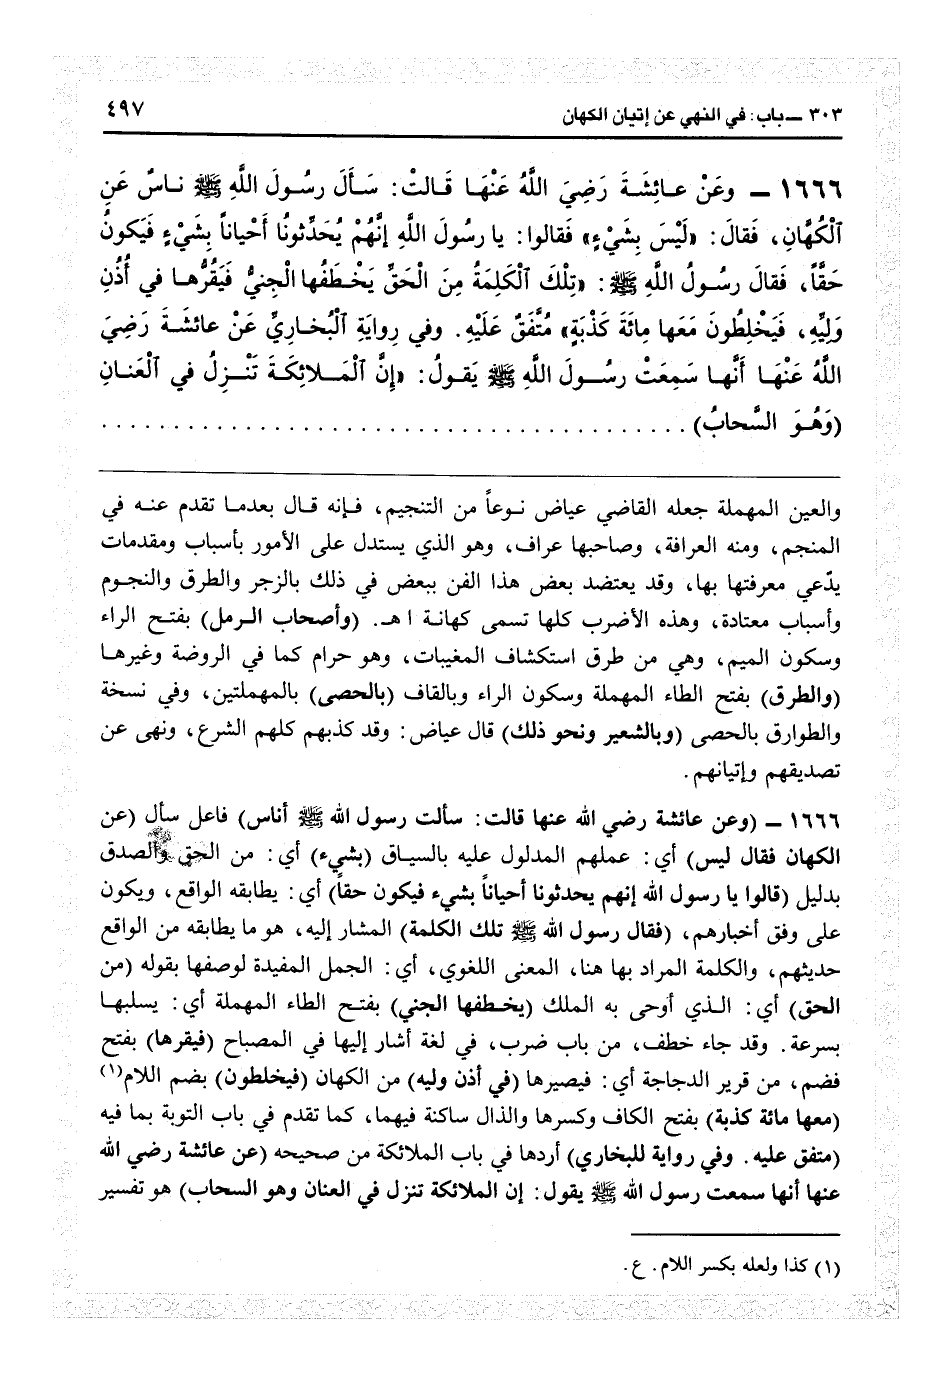 ٣٠٣ ـ باب: في النهي عن إتيان الكهان
٤٩٧
١٦٦٦ ـ وعَنْ عـائِشَةَ رَضِيَ اللَّهُ عَنْهَـا قَـالتْ: سَـأَلَ رسُـولَ اللَّهِ ﷺ نـاسٌ عَنِ
ٱلْكُهَّانِ، فَقالَ: «لَيْسَ بِشَيْءٍ» فَقالوا: يا رسُولَ اللَّهِ إنَّهُمْ يُحَدِّثونُا أَحْياناً بِشَيْءٍ فَيَكونُ
حَقّاً، فَقالَ رسُـولُ اللَّهِ ﷺ: «تِلْكَ ٱلْكَلِمَةُ مِنَ الْحَقِّ يَخْـطَفُها الْجِنيُّ فَيَقُرُّهـا في أُذُنِ
وَلِيِّهِ، فَيَخْلِطُونَ مَعَها مِائَةَ كَذْبَةٍ» مُتَّفَقٌ عَلَيْهِ. وفي رِوايَةِ ٱلْبُخارِيِّ عَنْ عائشَـةَ رَضِيَ
اللَّهُ عَنْهَـا أَنَّهـا سَمِعَتْ رسُـولَ اللَّهِ ﷺ يَقولُ: «إنَّ ٱلْمَـلائِكَةَ تَنْـزِلُ في ٱلْعَنـانِ
(وَهُـوَ السَّحابُ) . . . . . . . . . . . . . . . . . . . . . . . . . . . . . . . . . . . . . . . .
والعين المهملة جعله القاضي عياض نـوعاً من التنجيم، فـإنه قـال بعدمـا تقدم عنـه في
المنجم، ومنه العرافة، وصاحبها عراف، وهو الذي يستدل على الأمور بأسباب ومقدمات
يدّعي معرفتها بها، وقد يعتضد بعض هذا الفن ببعض في ذلك بالزجر والطرق والنجـوم
وأسباب معتادة، وهذه الأضرب كلها تسمى كهانـة ا هـ. (وأصحاب الـرمل) بفتـح الراء
وسكون الميم، وهي من طرق استكشاف المغيبات، وهو حرام كما في الروضة وغيرهـا
(والطرق) بفتح الطاء المهملة وسكون الراء وبالقاف (بالحصى) بالمهملتين، وفي نسخة
والطوارق بالحصى (وبالشعير ونحو ذلك) قال عياض: وقد كذبهم كلهم الشرع، ونهى عن
تصديقهم وإتيانهم.
١٦٦٦ ـ (وعن عائشة رضي الله عنها قالت: سألت رسول الله ﷺ أناس) فاعل سأل (عن
الكهان فقال ليس) أي: عملهم المدلول عليه بالسياق (بشيء) أي: من الحق والصدق
بدليل (قالوا يا رسول الله إنهم يحدثونا أحياناً بشيء فيكون حقاً) أي: يطابقه الواقع، ويكون
على وفق أخبارهم، (فقال رسول الله ﷺ تلك الكلمة) المشار إليه، هو ما يطابقه من الواقع
حديثهم، والكلمة المراد بها هنا، المعنى اللغوي، أي: الجمل المفيدة لوصفها بقوله (من
الحق) أي: الـذي أوحى به الملك (يخـطفها الجني) بفتـح الطاء المهملة أي: يسلبهـا
بسرعة. وقد جاء خطف، من باب ضرب، في لغة أشار إليها في المصباح (فيقرها) بفتح
فضم، من قرير الدجاجة أي: فيصيرها (في أذن وليه) من الكهان (فيخلطون) بضم اللام(١)
(معها مائة كذبة) بفتح الكاف وكسرها والذال ساكنة فيهما، كما تقدم في باب التوبة بما فيه
(متفق عليه. وفي رواية للبخاري) أردها في باب الملائكة من صحيحه (عن عائشة رضي الله
عنها أنها سمعت رسول الله ﷺ يقول: إن الملائكة تنزل في العنان وهو السحاب) هو تفسير
(١) كذا ولعله بكسر اللام. ع.